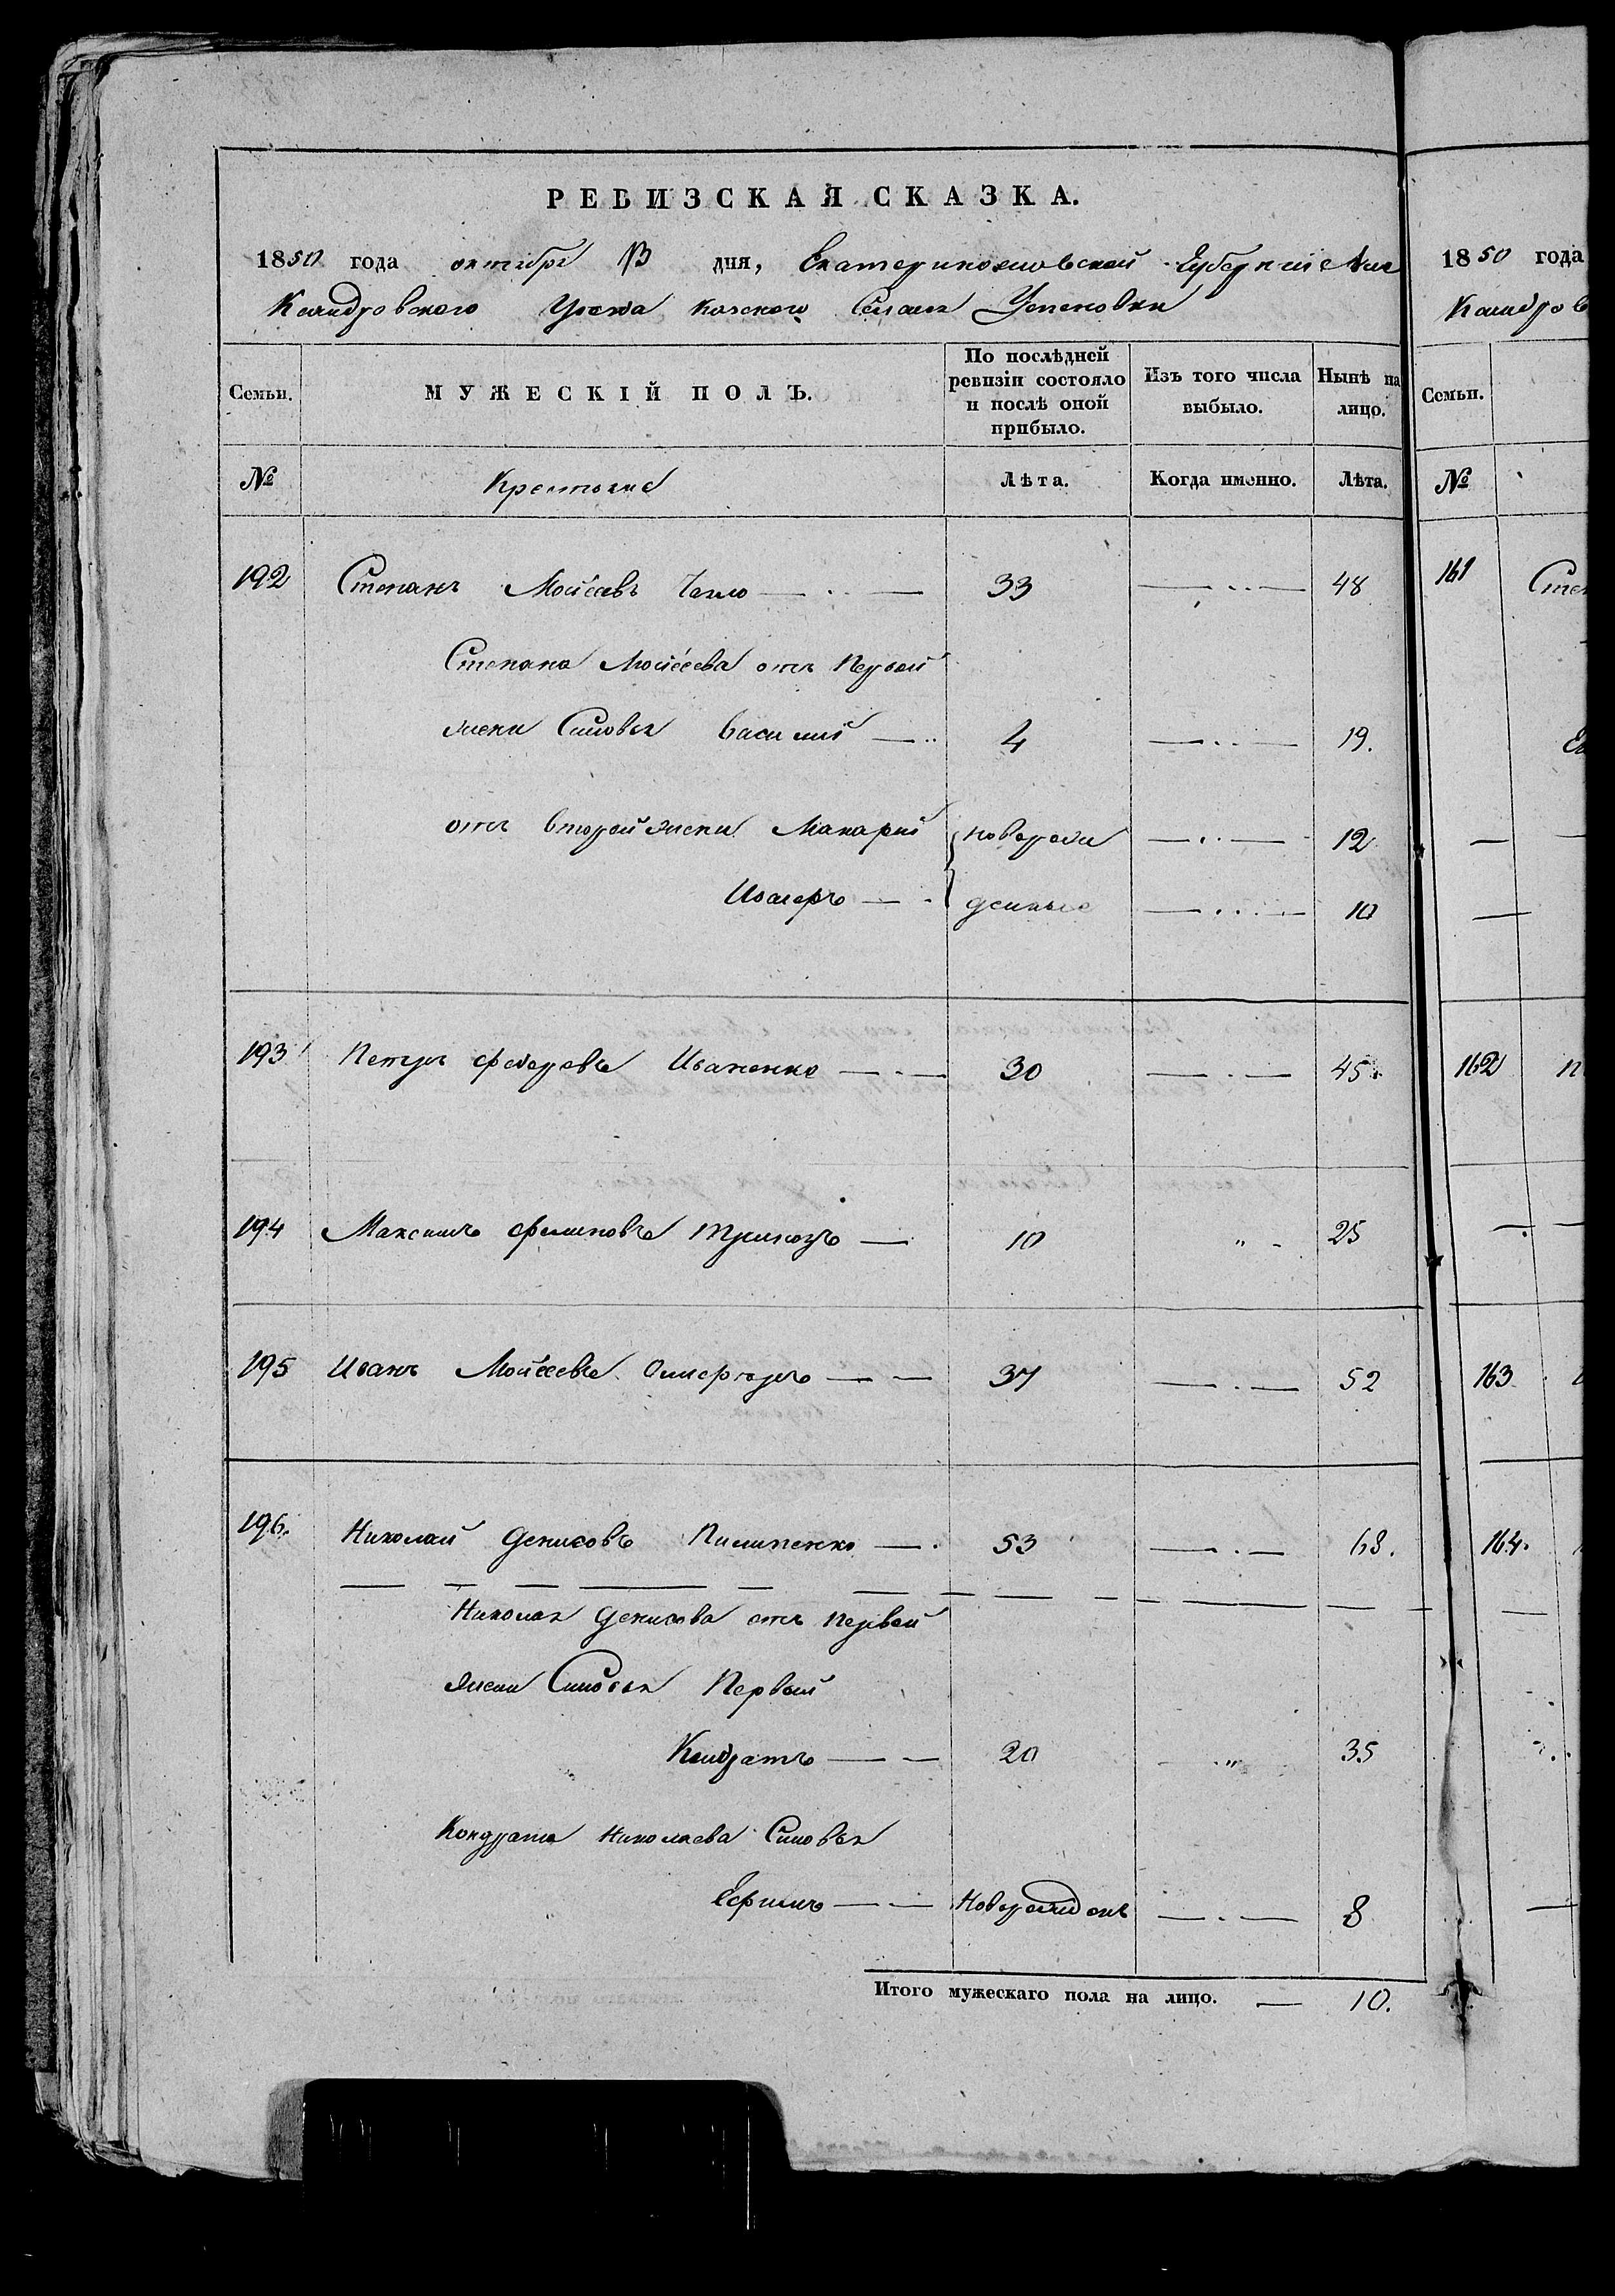 РЕВИЗСКАЯ СКАЗКА.
1850 года октября 13 дня, Екатеринославской Губернии Але
ксандровского Уезда казеного Селения Успеновки
Семьи. МУЖЕСКІЙ ПОЛЪ. По послѣдней ревизіи состояло и послѣ оной прибыло. Изъ того числа выбыло. Нынѣ на лицо.
№ Крестьяне Лѣта. Когда именно. Лѣта.
192 Степанъ Мойсеевъ 33 48
Степана Мойсеева отъ Первой
жены Сыновья Василий 4 19.
отъ второй жены Макарий новорож 12
денные 10
193 Петръ Федоровъ Иваненко 30 45
194 Максимъ Филиповъ 10 " 25
195 Иванъ Мойсеевъ 37 52
196. Николай Денисовъ Пилипенко 53 68.
Николая Денисова отъ Первой
жены Сыновья Первый
Кондратъ 20 " 35
Кондрата Николаева Сыновья
Ефимъ Новорожденъ 8
Итого мужескаго пола на лицо. 10.
1850 года
Семьи.
№
161
162
163
164.